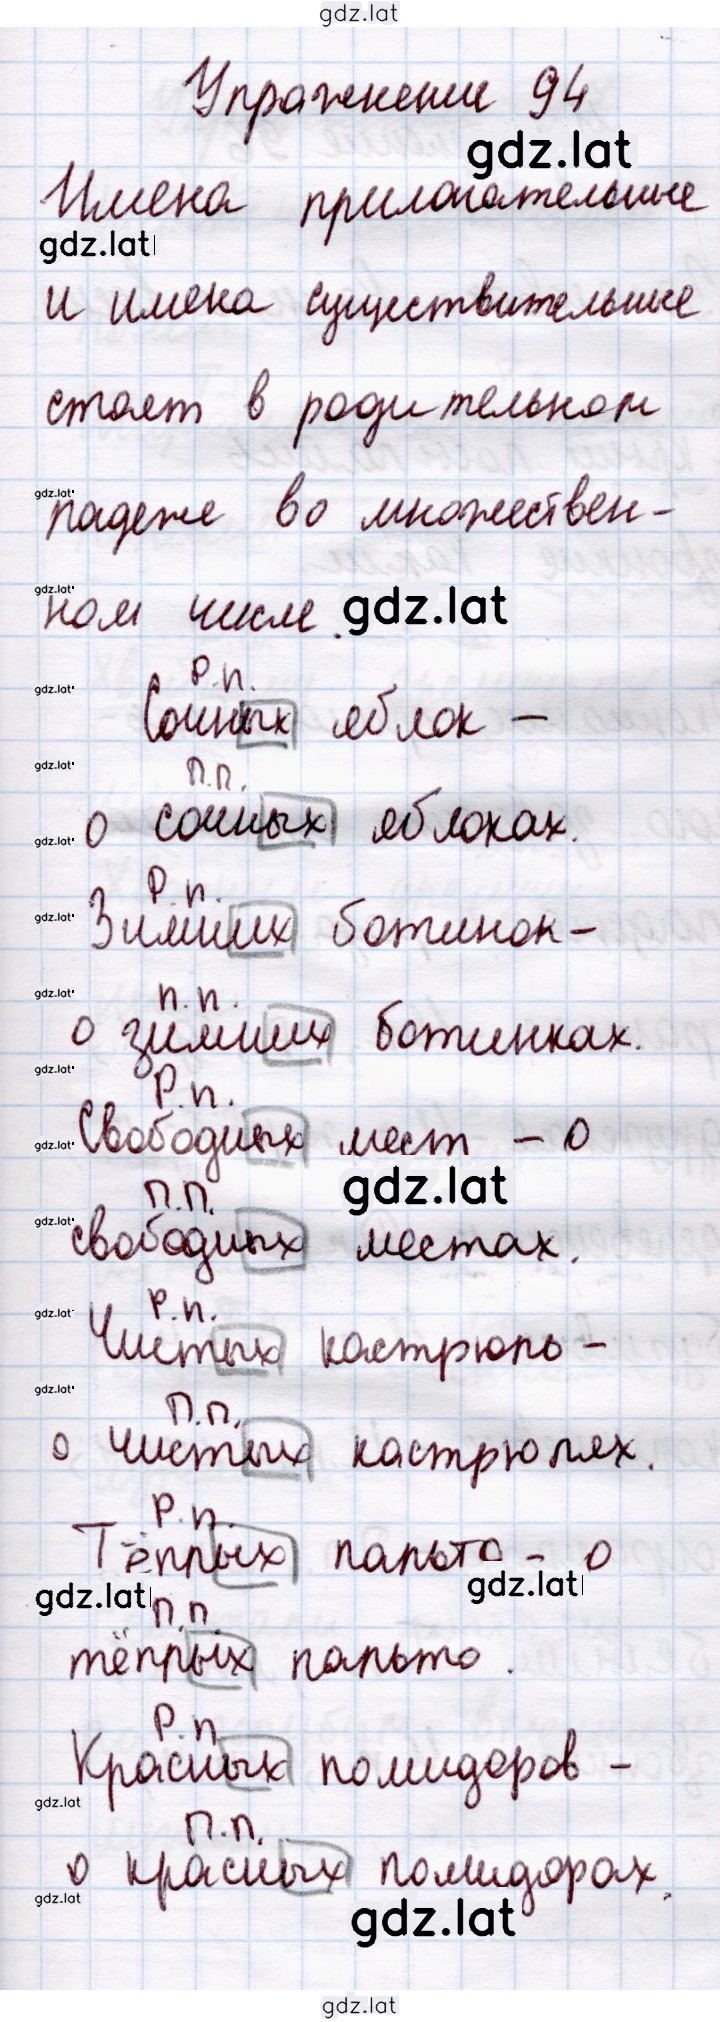 gdz.lat
Упражнение 94
gdz.lat
Имена прилагательные
gdz.lat
и имена существительные
стоят в родительном
gdz.lat
падеже во множествен-
gdz.lat
ном числе. gdz.lat
Р.п.
gdz.lat
Сочных яблок –
gdz.lat
П.п.
gdz.lat
о сочных яблоках.
Р.п.
gdz.lat
Зимних ботинок –
gdz.lat
п.п.
о зимних ботинках.
gdz.lat
Р.п.
gdz.lat
Свободных мест – о
gdz.lat
П.п.
gdz.lat
свободных местах.
gdz.lat
Р.п.
Чистых кастрюль –
gdz.lat
П.п.
о чистых кастрюлях.
Р.п.
Тёплых пальто – о
gdz.lat gdz.lat
П.п
тёплых пальто.
Р.п
Красных помидоров –
gdz.lat
П.п.
о красных помидорах.
gdz.lat
gdz.lat
gdz.lat